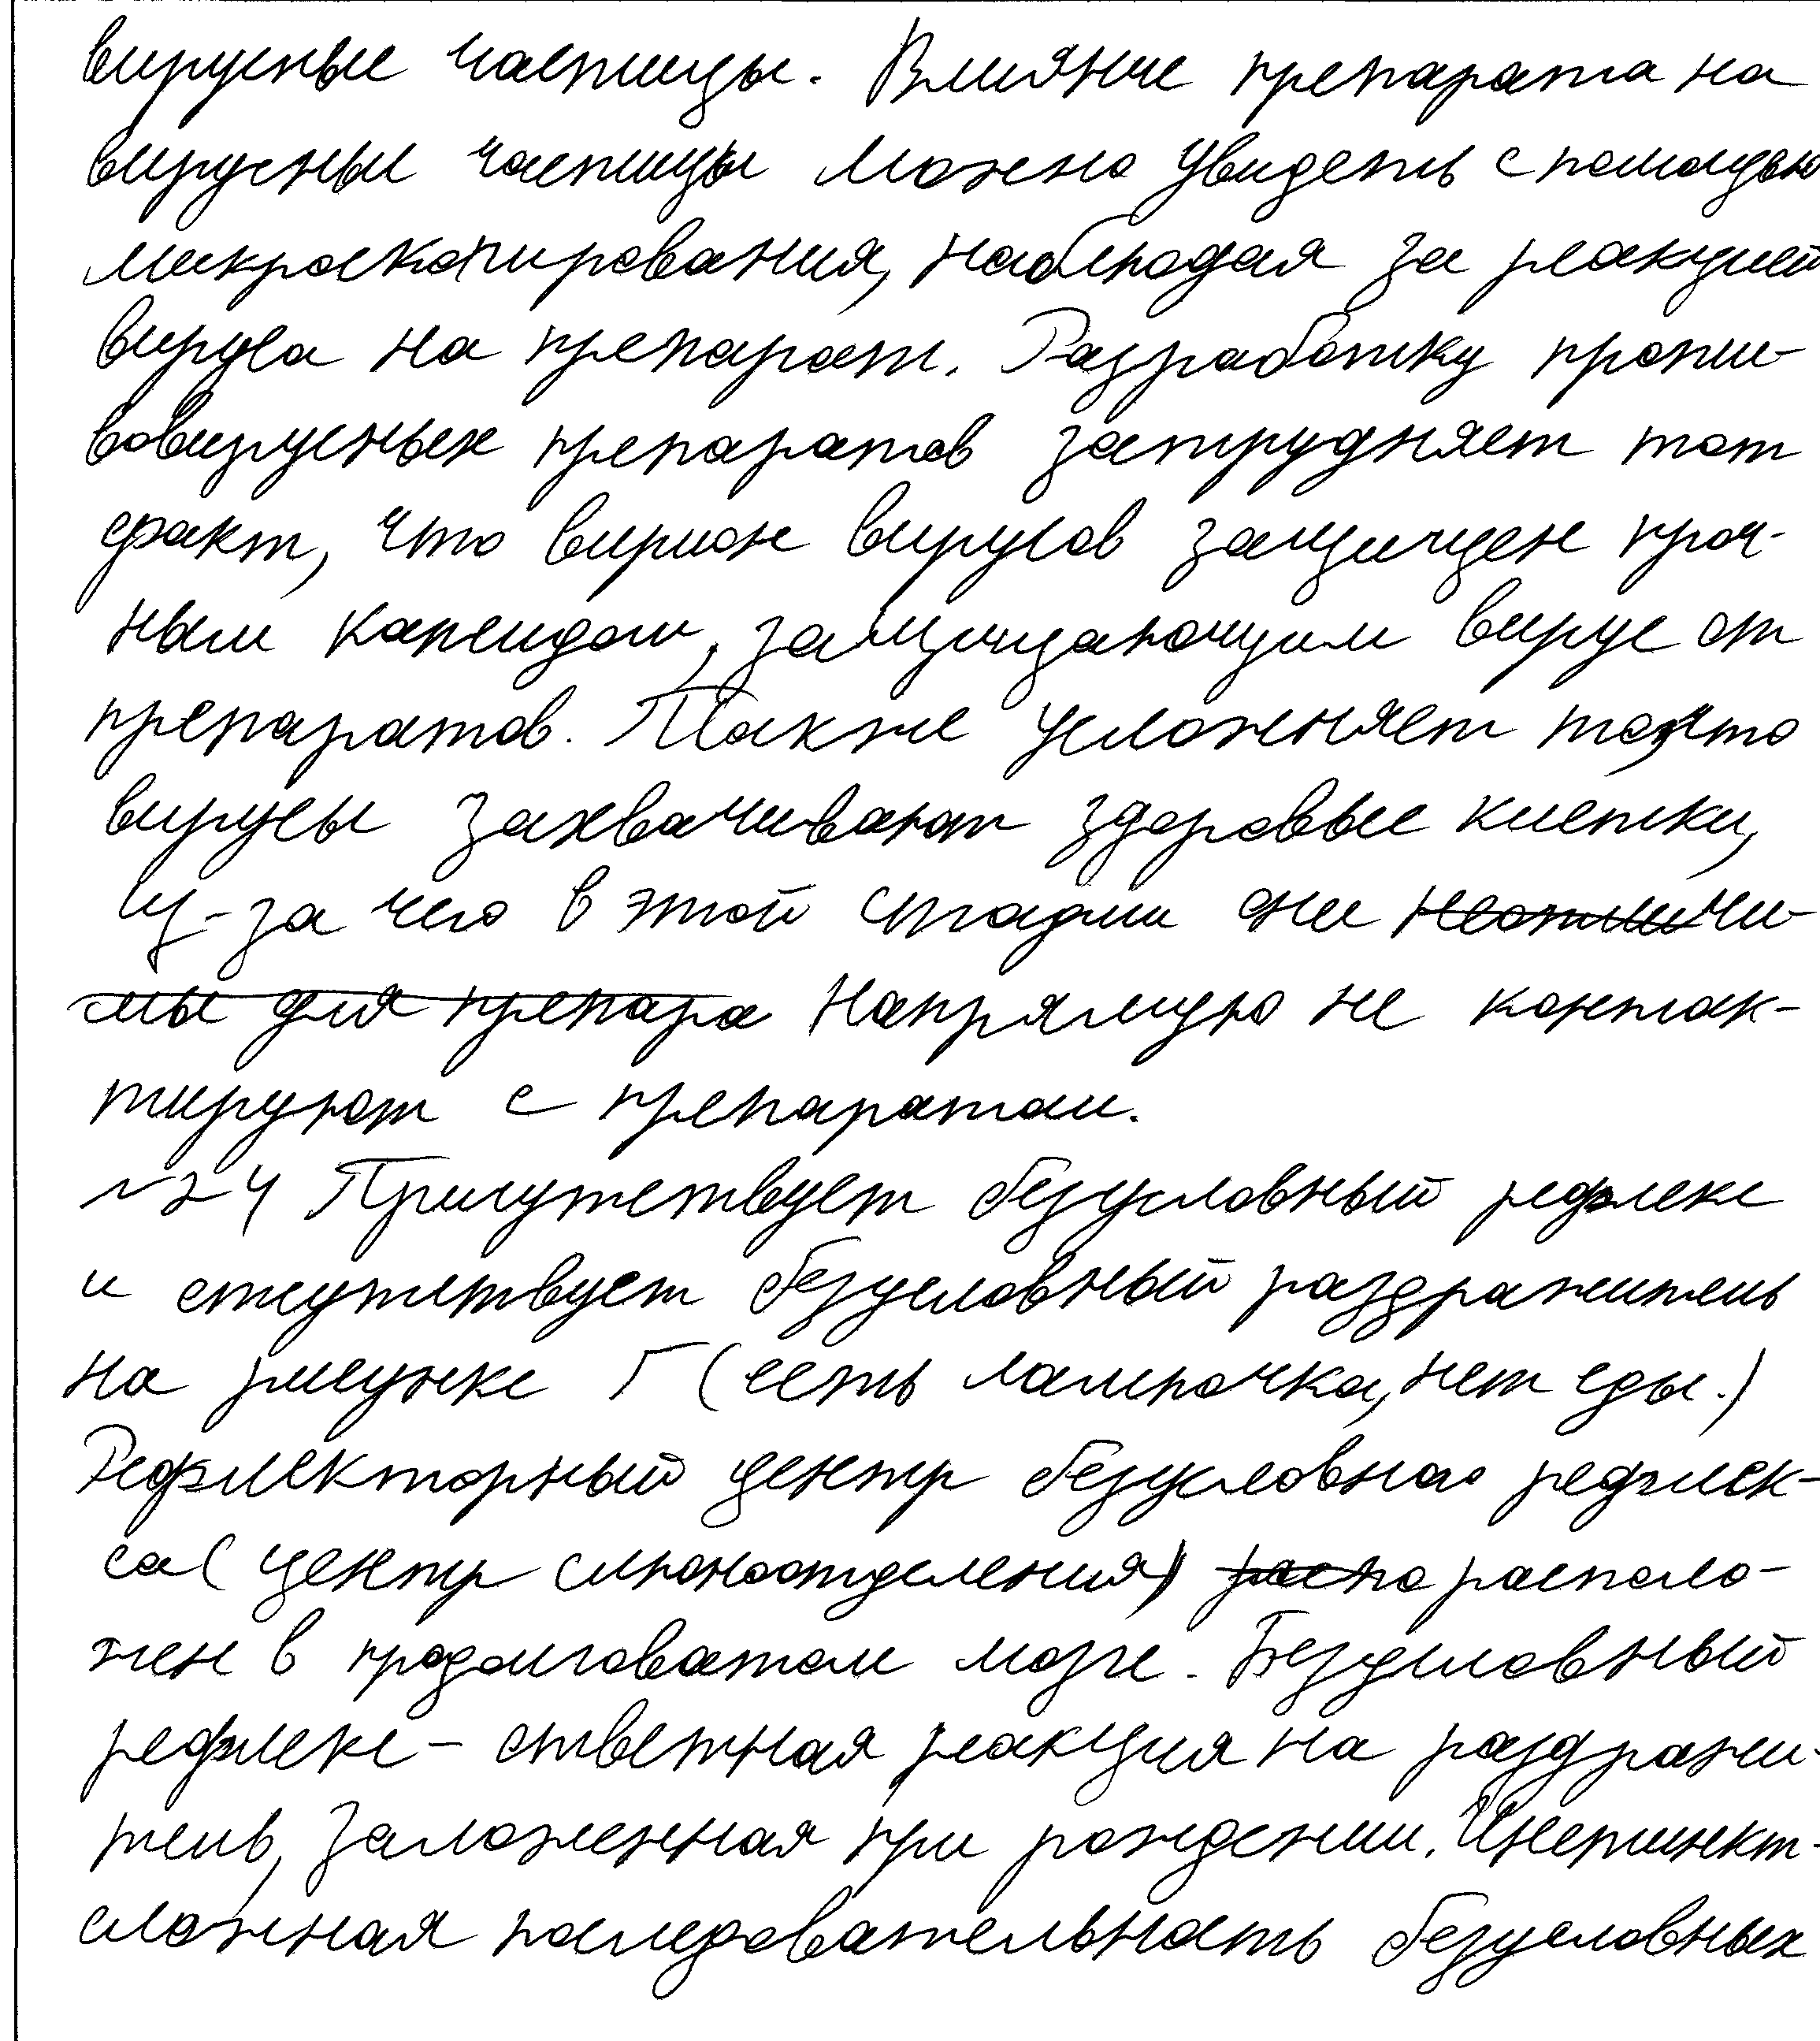 вирусные частицы. Влияние препарата на
вирусные частицы можно увидеть с помощью
микроскопирования, наблюдая за реакцией
вируса на препарат. Разработку проти-
вовирусных препаратов затрудняет тот
факт, что вирион вирусов защищен проч-
ным капсидом, защищающим вирус от
препаратов. Также усложняет то, что
вирусы захватчивают здоровые клетки,
из-за чего в этой стадии они неотличи-
мы для препара напрямую не контак-
тируют с препаратом.
~24 Присутствует безусловный рефлекс
и отсутствует безусловный раздражитель
на рисунке Г (есть лампочка, нет еды.)
Рефлекторный центр безусловного рефлек-
са (центр слюноотделения) распо располо-
жен в продолговатом мозге. Безусловный
рефлекс - ответная реакция на раздражи-
тель, заложенная при рождении. Инстинкт-
сложная последовательность безусловных